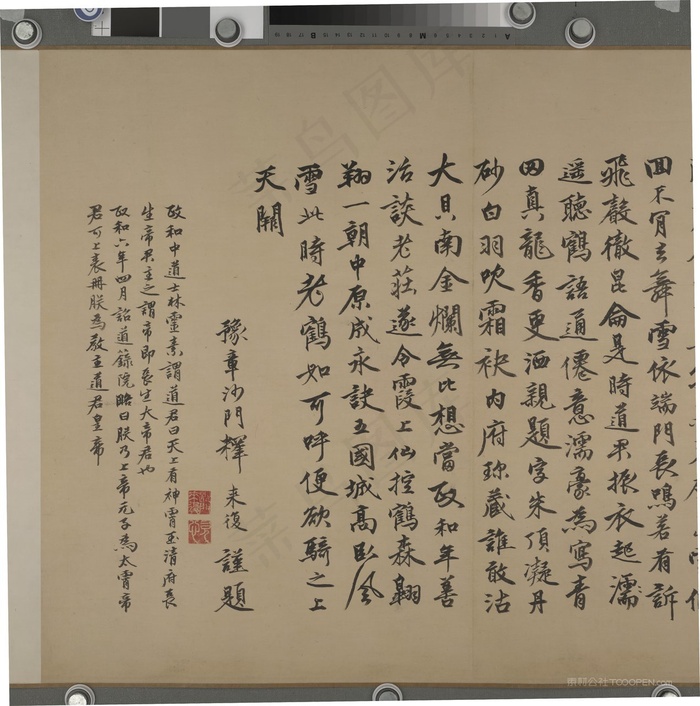 回不肎去舞雪依端門長鳴若有訴
飛聲徹昆侖是時道君振衣起濡
遥聽鶴語通僊意濡豪為寫青
田真龍香更洒親題字朱頂凝丹
砂白羽吹霜袂内府珎藏誰敢沽
大貝南金爛無比想當政和年善
治談老莊遂令霞上仙控鶴森翱
翔一朝中原成永訣五國城高臥風
雪此時老鶴如可呼便欲騎之上
天闕
豫章沙門釋来復謹題
政和中道士林靈素謂道君曰天上有神霄玉清府長
生帝君主之謂帝即長生大帝君也
政和六年四月詔道錄院略曰朕乃上帝元子為太霄帝
君可上表冊朕為教主道君皇帝
B
M
A
菜鸟图库
素材公社TOOOPEN.com